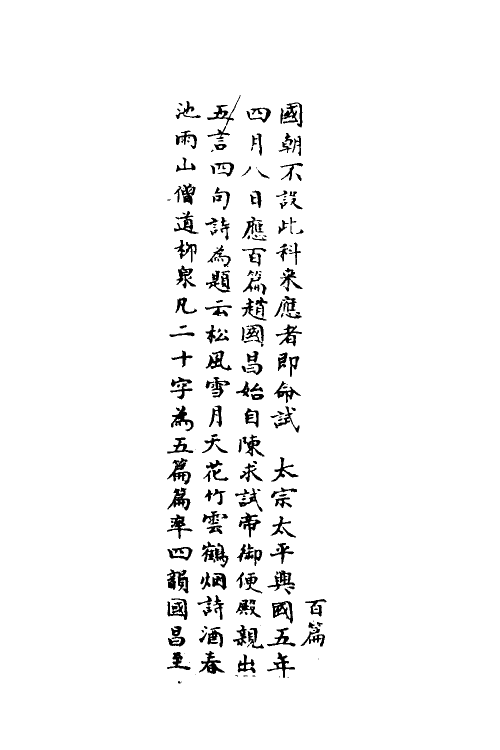 百篇
國朝不設此科来應者即命試　太宗太平興國五年
四月八日應百篇趙國昌始自陳求試帝御便殿親出
五言四句詩為題云松風雪月天花竹雲鶴烟詩酒春
池雨山僧道柳泉凡二十字為五篇篇率四韻國昌至